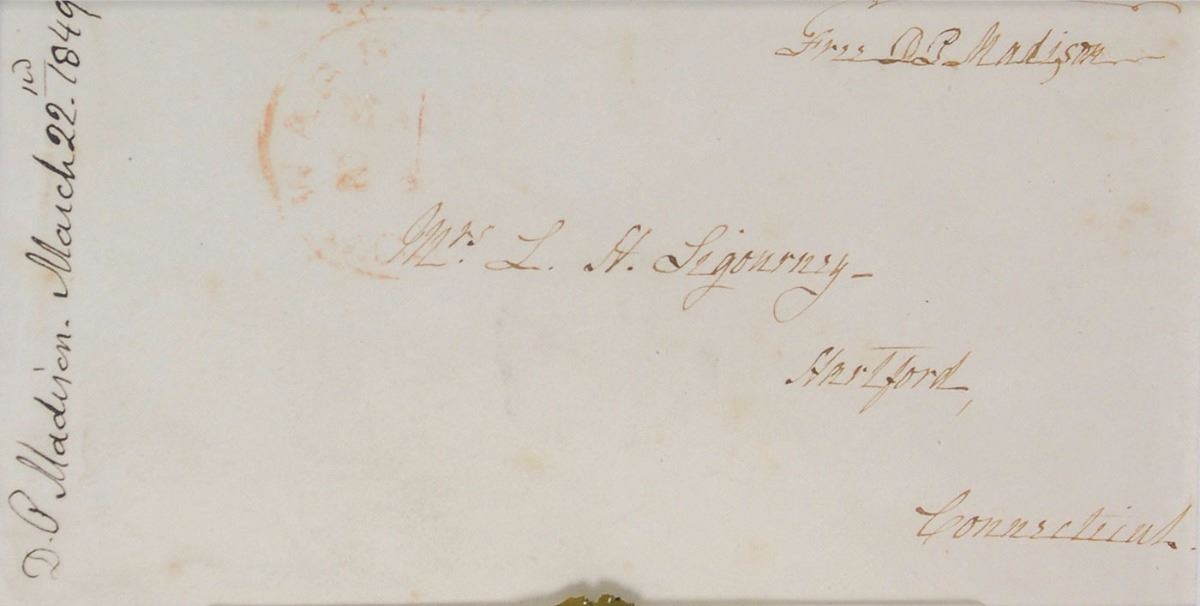 Free D P Madison
Mrs. L. H. Sigourney-
Hartford,
Connecticut.
D. P Madison. March 22nd 1849